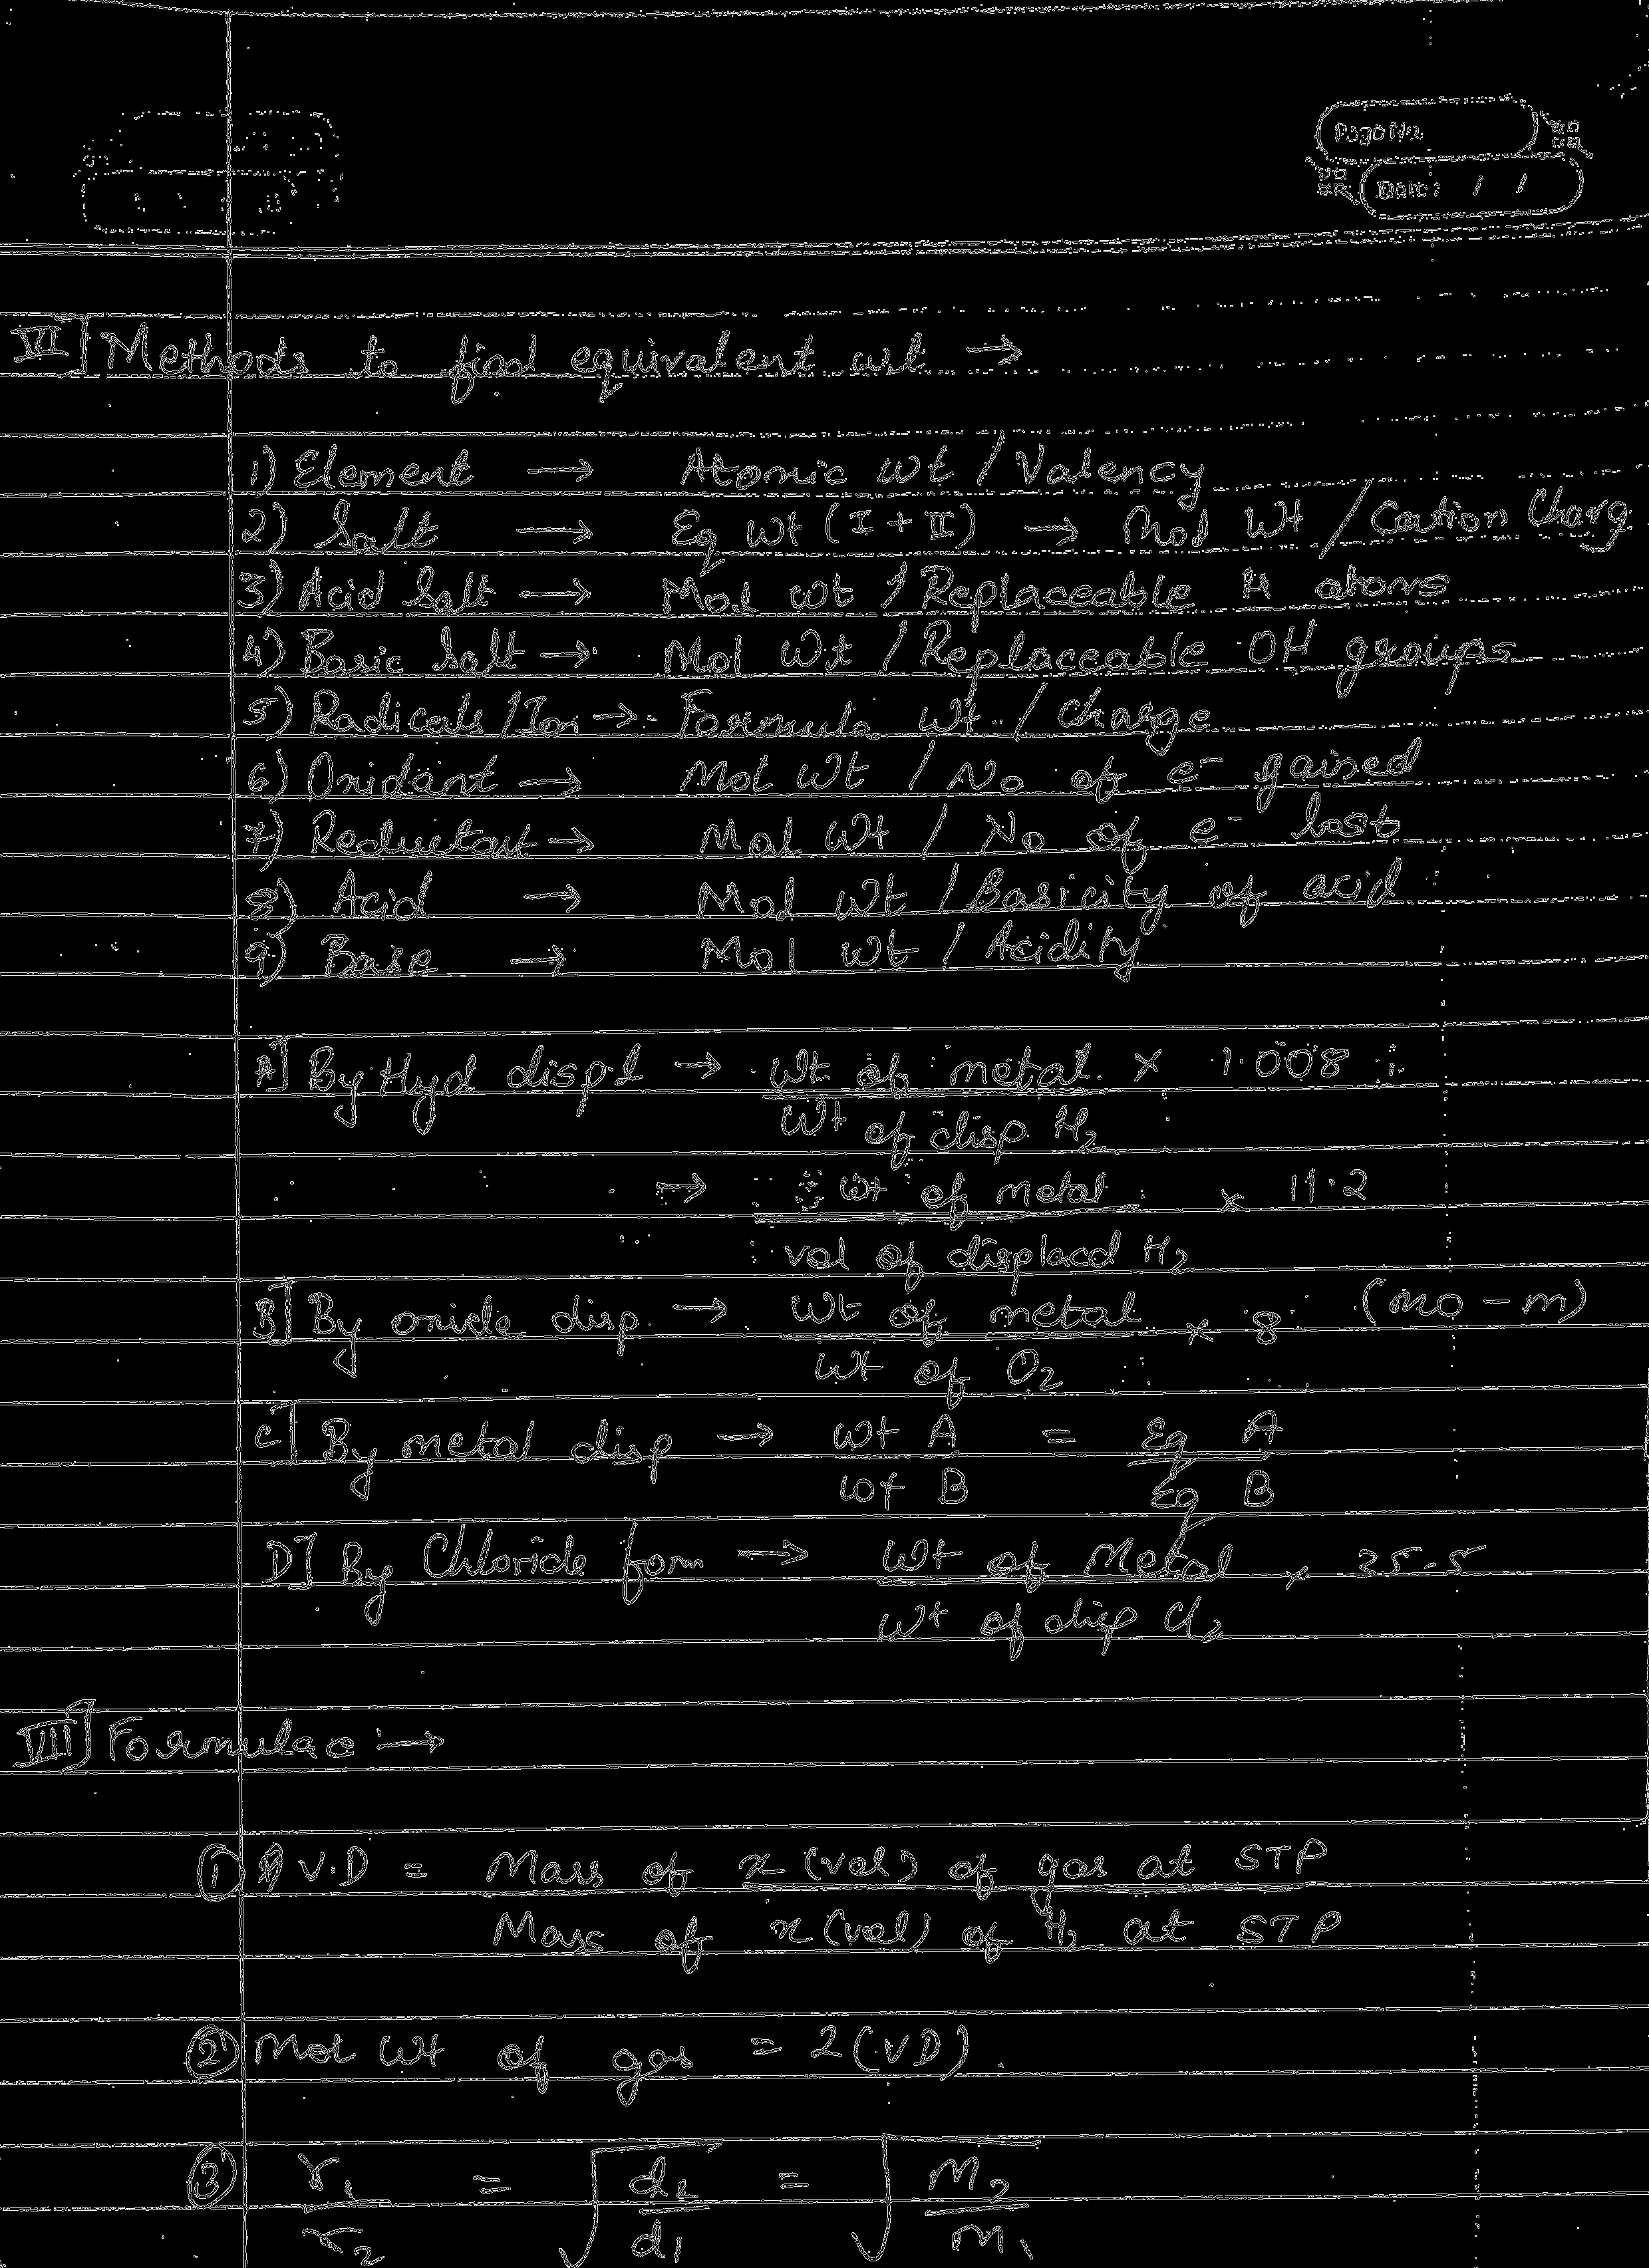 Page No.
Date: / /
VI] Methods to find equivalent wt →
1) Element → Atomic wt / Valency
2) Salt → Eq wt (I + II) → Mol Wt / Cation Charg
3) Acid Salt → Mol wt / Replaceable H atoms
4) Basic Salt → Mol Wt / Replaceable OH groups
5) Radicals / Ion → Formula wt / charge
6) Oxidant → Mol wt / No of e⁻ gained
7) Reductant → Mol wt / No of e⁻ lost
8) Acid → Mol wt / Basicity of acid
9) Base → Mol wt / Acidity
A] By Hyd displ → wt of metal × 1.008
wt of disp H₂
→ wt of metal × 11.2
vol of displacd H₂
B] By oxide disp → wt of metal × 8 (MO - M)
wt of O₂
C] By metal disp → wt A = Eq A
wt B Eq B
D] By Chloride form → wt of Metal × 35.5
wt of disp Cl₂
VII] Formulae :→
① V.D = Mass of x (vol) of gas at STP
Mass of x (vol) of H₂ at STP
② Mol wt of gas = 2 (VD)
③ r₁ = √ d₂ = √ M₂
r₂ d₁ M₁